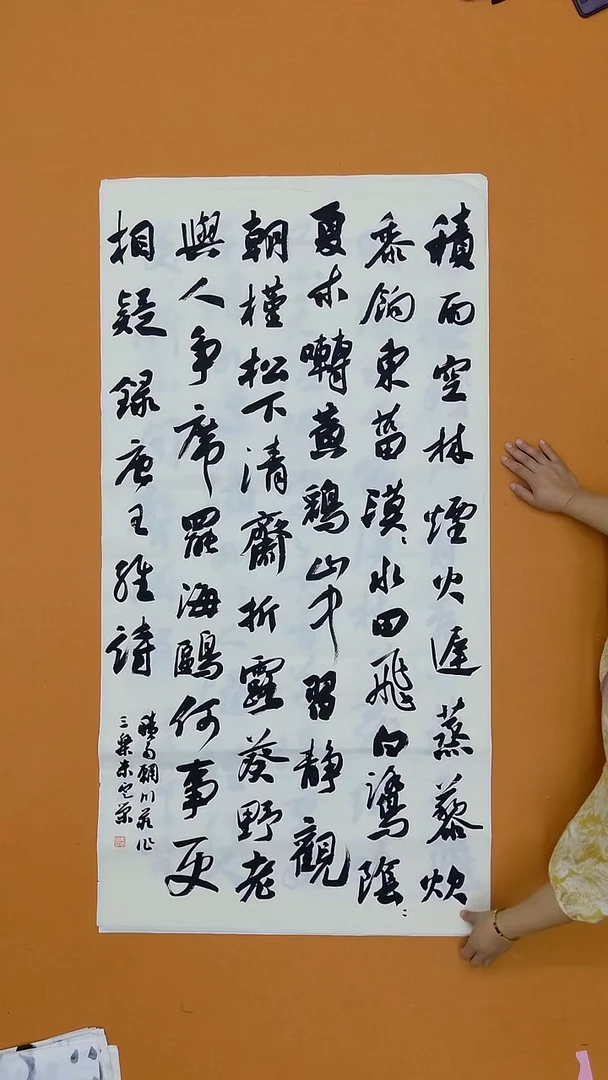 積雨空林煙火遲蒸藜炊
黍餉東菑漠〻水田飛白鷺陰〻
夏木囀黃鸝山中習静觀
朝槿松下清齋折露葵野老
與人争席罷海鷗何事更
相疑錄唐王維詩
積雨輞川莊作
三樂